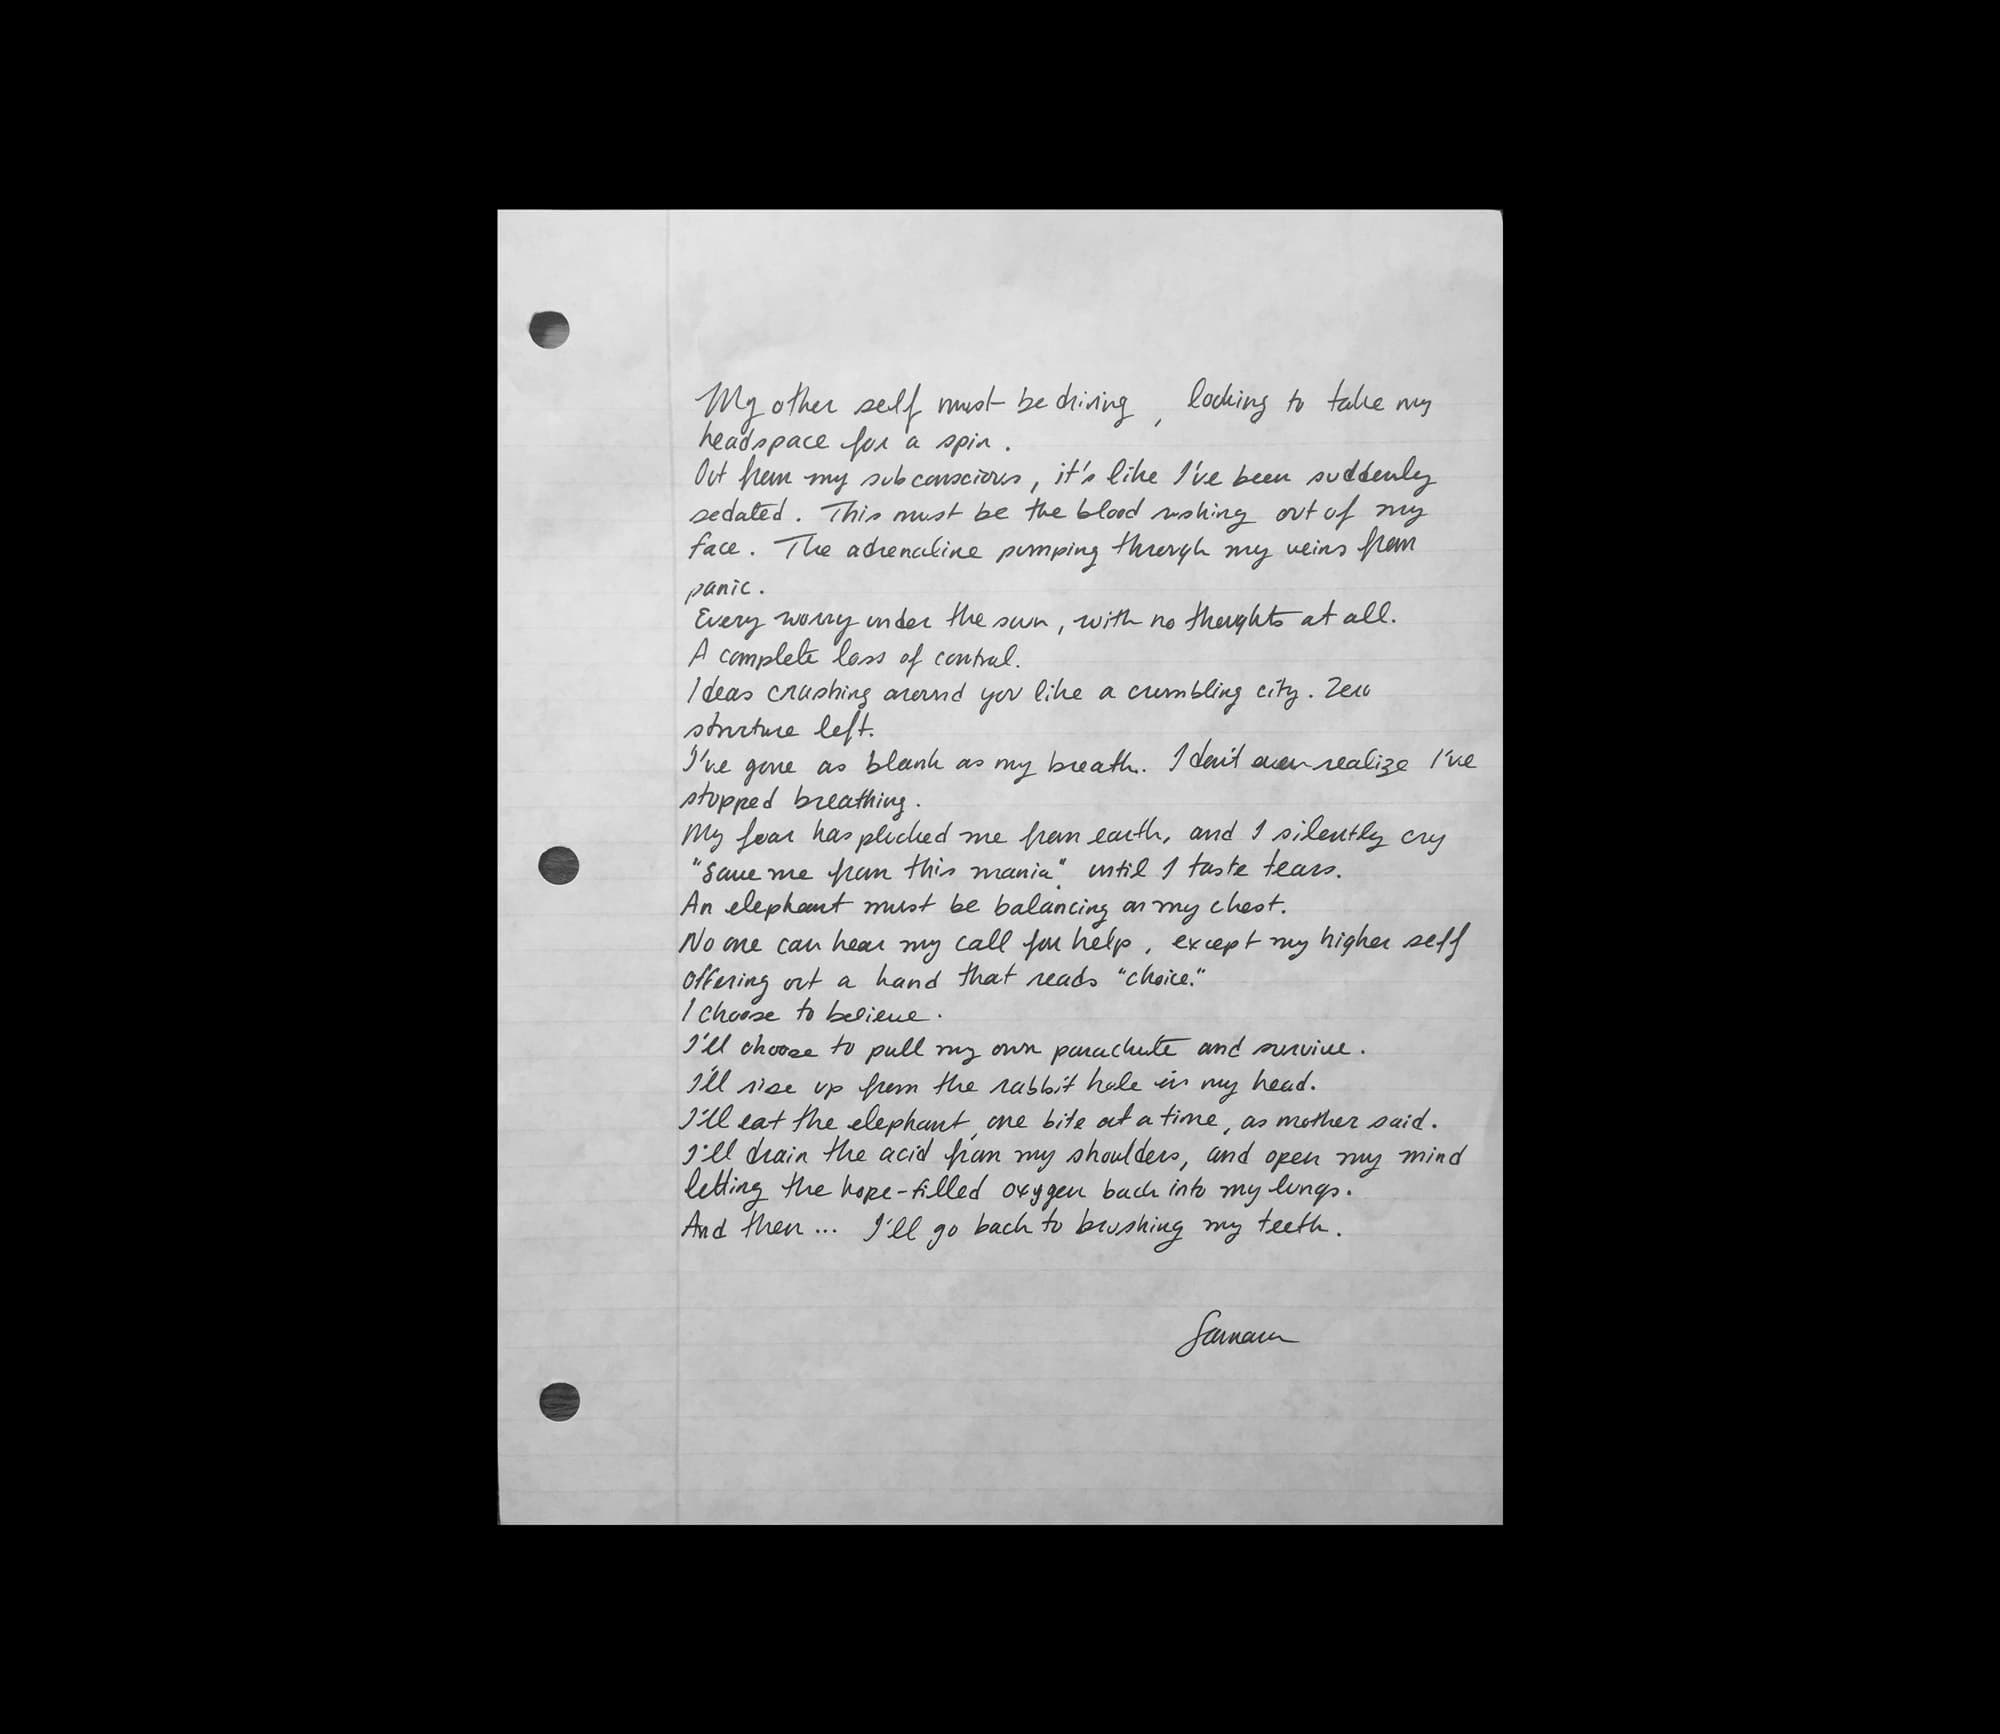 My other self must be driving, looking to take my
headspace for a spin.
Out from my subconscious, it's like I've been suddenly
sedated. This must be the blood rushing out of my
face. The adrenaline pumping through my veins from
panic.
Every worry under the sun, with no thoughts at all.
A complete loss of control.
Ideas crashing around you like a crumbling city. Zero
structure left.
I've gone as blank as my breath. I don't even realize I've
stopped breathing.
My fear has plucked me from earth, and I silently cry
"Save me from this mania", until I taste tears.
An elephant must be balancing on my chest.
No one can hear my call for help, except my higher self
offering out a hand that reads "choice."
I choose to believe.
I'll choose to pull my own parachute and survive.
I'll rise up from the rabbit hole in my head.
I'll eat the elephant, one bite at a time, as mother said.
I'll drain the acid from my shoulders, and open my mind
letting the hope-filled oxygen back into my lungs.
And then... I'll go back to brushing my teeth.